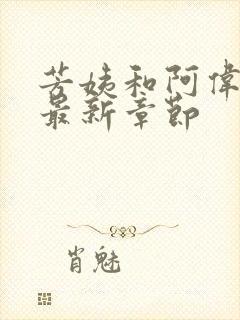 芳姨和阿偉
最新章節
肖魅